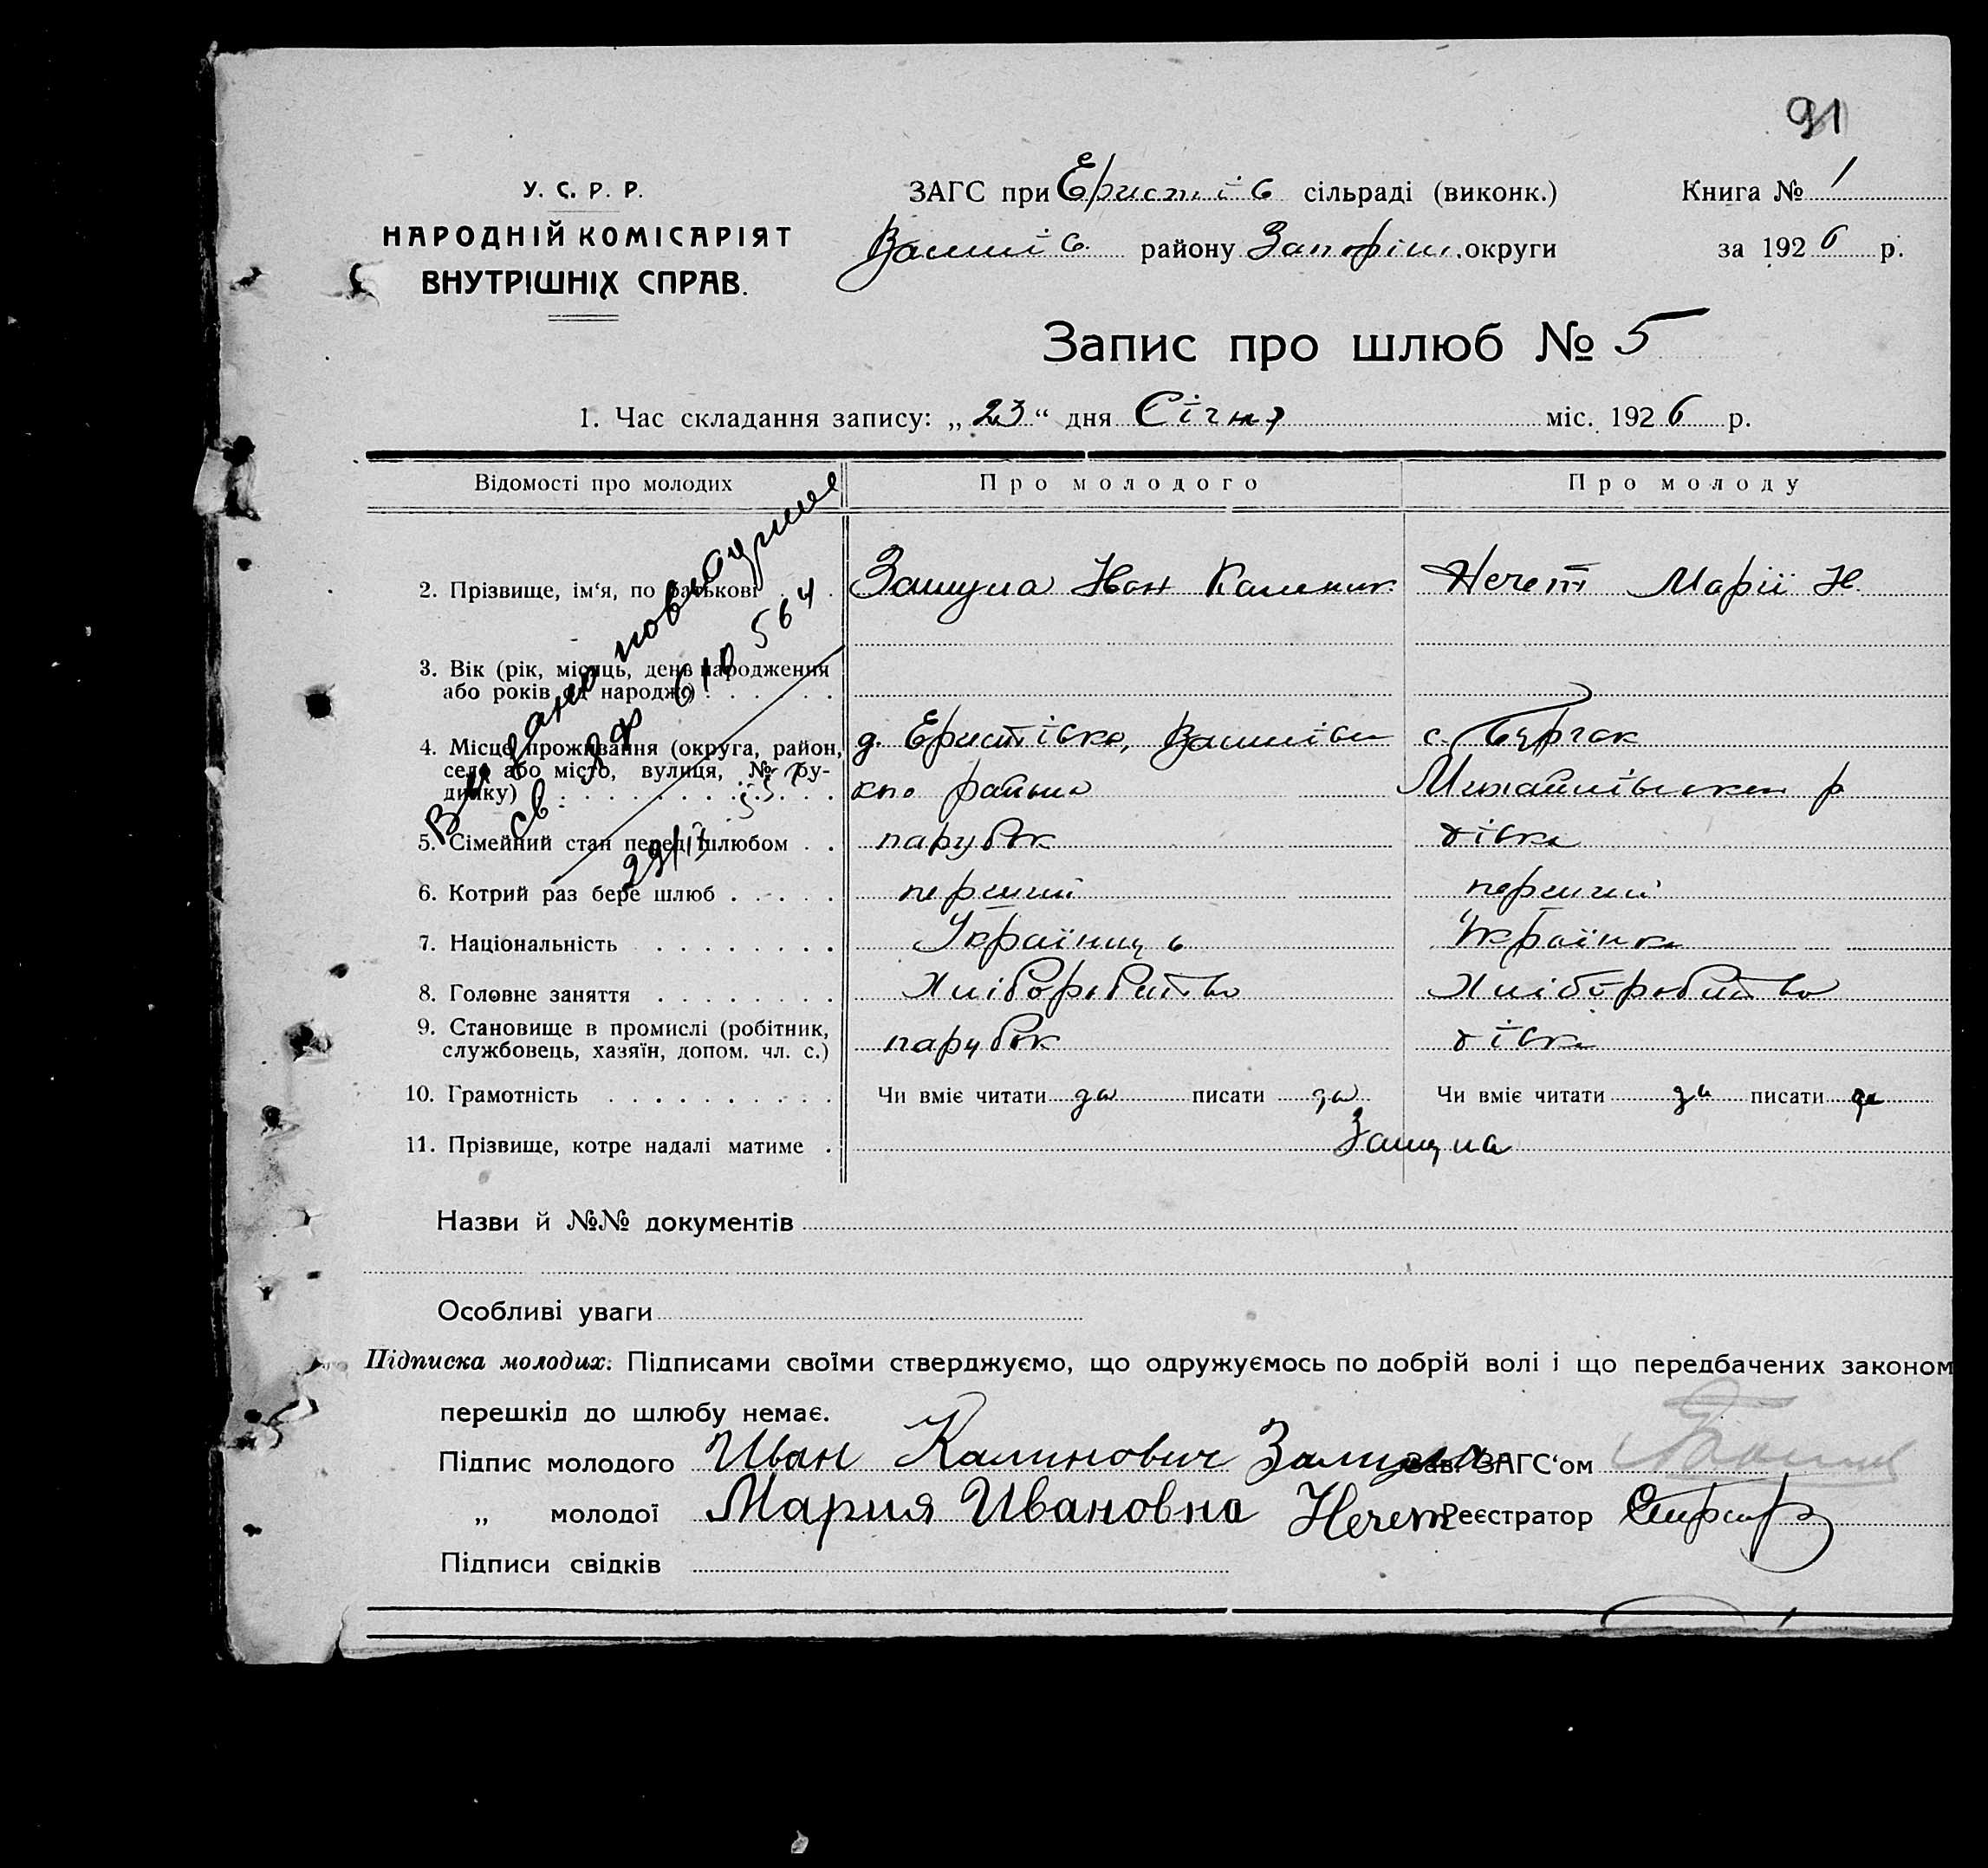 91
У. С. Р. Р.
НАРОДНІЙ КОМІСАРІЯТ
ВНУТРІШНІХ СПРАВ.
ЗАГС при Еристів сільраді (виконк.)
Книга № 1
району Запоріш. округи
за 1926 р.
Запис про шлюб № 5
1. Час складання запису: „23“ дня Січня міс. 1926 р.
Відомості про молодих
Про молодого
Про молоду
2. Прізвище, ім‘я, по батькові . . .
Иван Калиник.
Нечет Марії И.
3. Вік (рік, місяць, день народження
або років од народж.) . . . . . .
4. Місце проживання (округа, район,
село або місто, вулиця, № бу-
динку) . . . . . . . . . . . .
д. Еристівка,
кого района
с.
Михайлівського р
5. Сімейний стан перед шлюбом . .
парубок
дівка
6. Котрий раз бере шлюб . . . . .
перший
перший
7. Національність . . . . . . . .
Українць
Українка
8. Головне заняття . . . . . . . .
Хліборобство
Хліборобство
9. Становище в промислі (робітник,
службовець, хазяїн, допом. чл. с.)
парубок
дівка
10. Грамотність . . . . . . . . . .
Чи вміє читати да писати да
Чи вміє читати да писати да
11. Прізвище, котре надалі матиме .
Видано повторне
610564
Назви й №№ документів
Особливі уваги
Підписка молодих: Підписами своїми стверджуємо, що одружуємось по добрій волі і що передбачених законом
перешкід до шлюбу немає.
Підпис молодого Иван Калинович
Зав. ЗАГС‘ом
„ молодої Мария Ивановна Нечет
Реєстратор
Підписи свідків